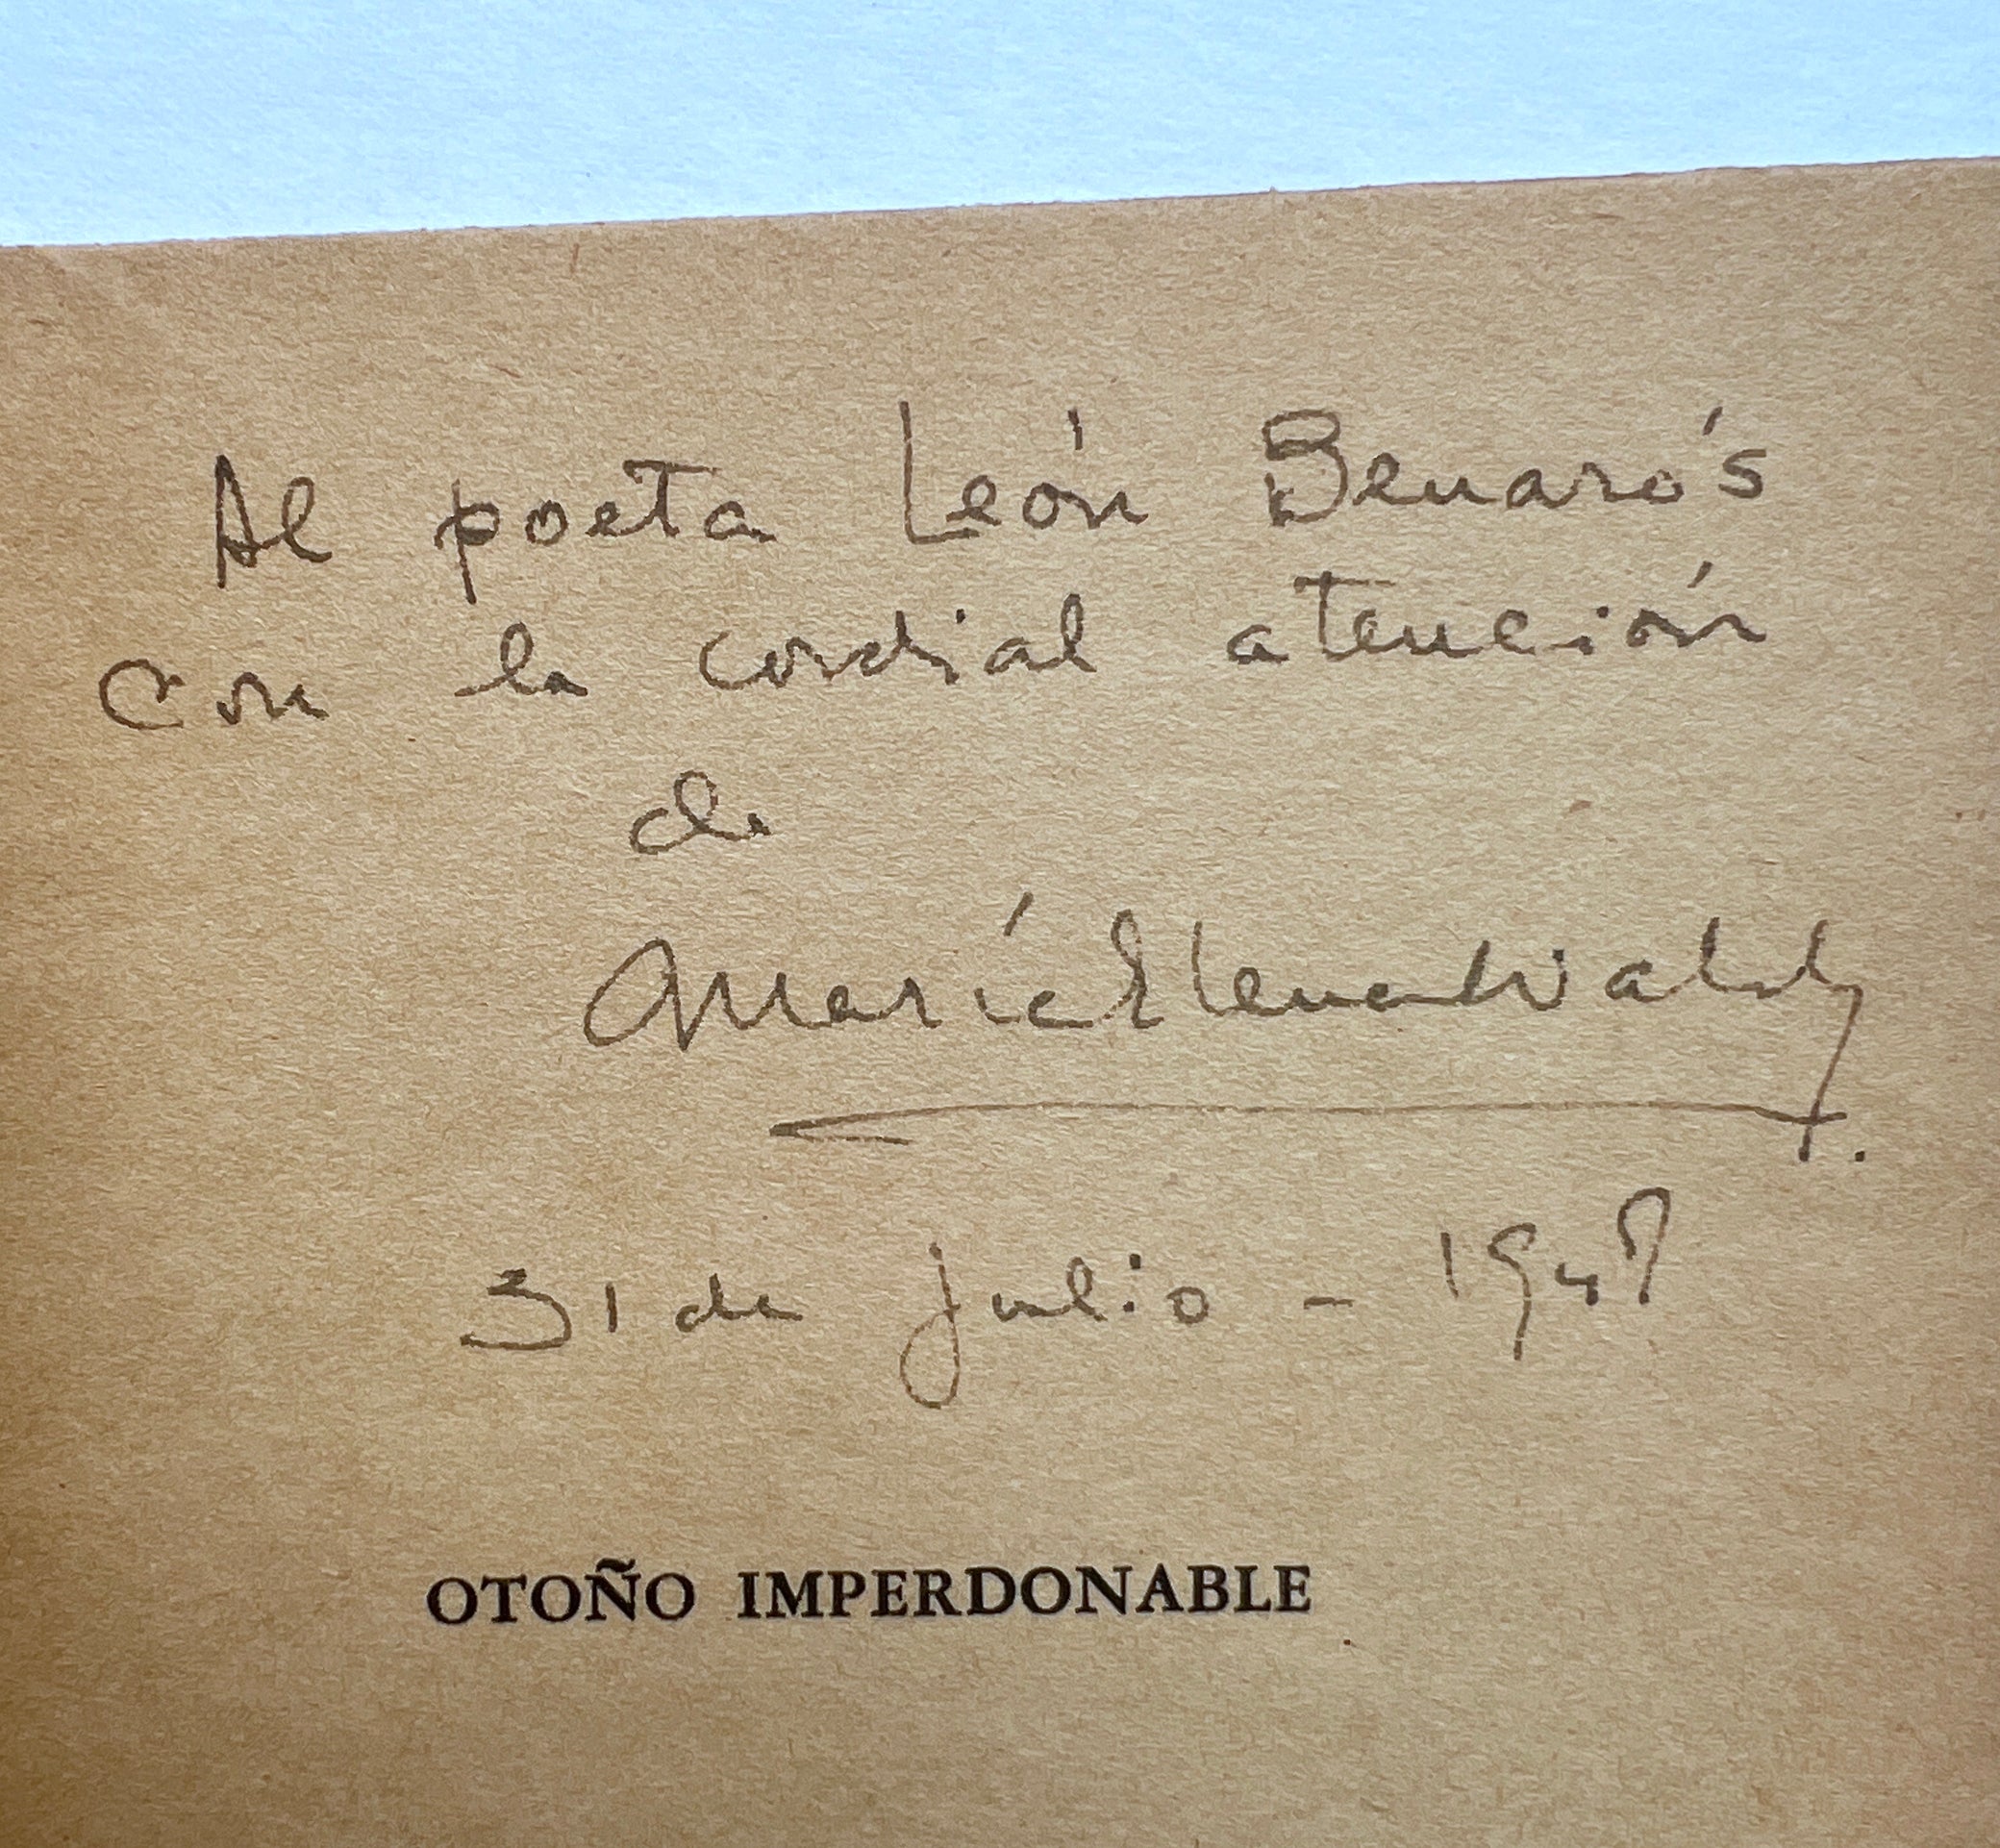 Al poeta León Benarós
con la cordial atención
de
María Elena Walsh
31 de julio - 1947
OTOÑO IMPERDONABLE